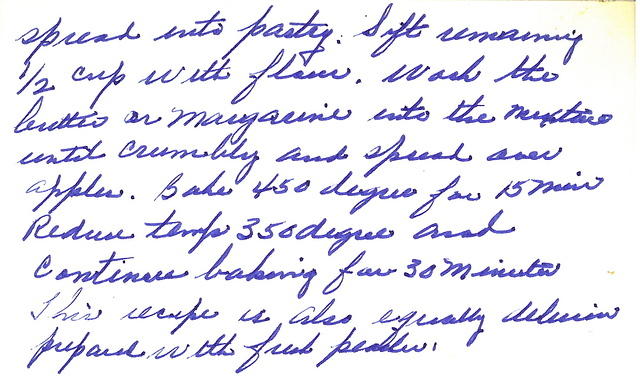 spread into pastry. Sift remaining
1/2 cup with flour. Work the
butter or Margarine into the mixture
until crumbly and spread over
apples. Bake 450 degree for 15 Min
Reduce temp 350 degree and
Continue baking for 30 Minutes
This recipe is also equally delicious
prepared with fresh peaches.